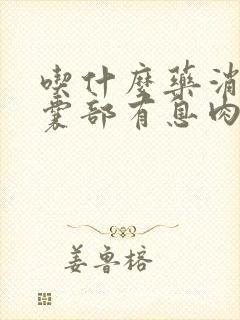 喫什麼藥消
囊部有息肉
姜魯榕